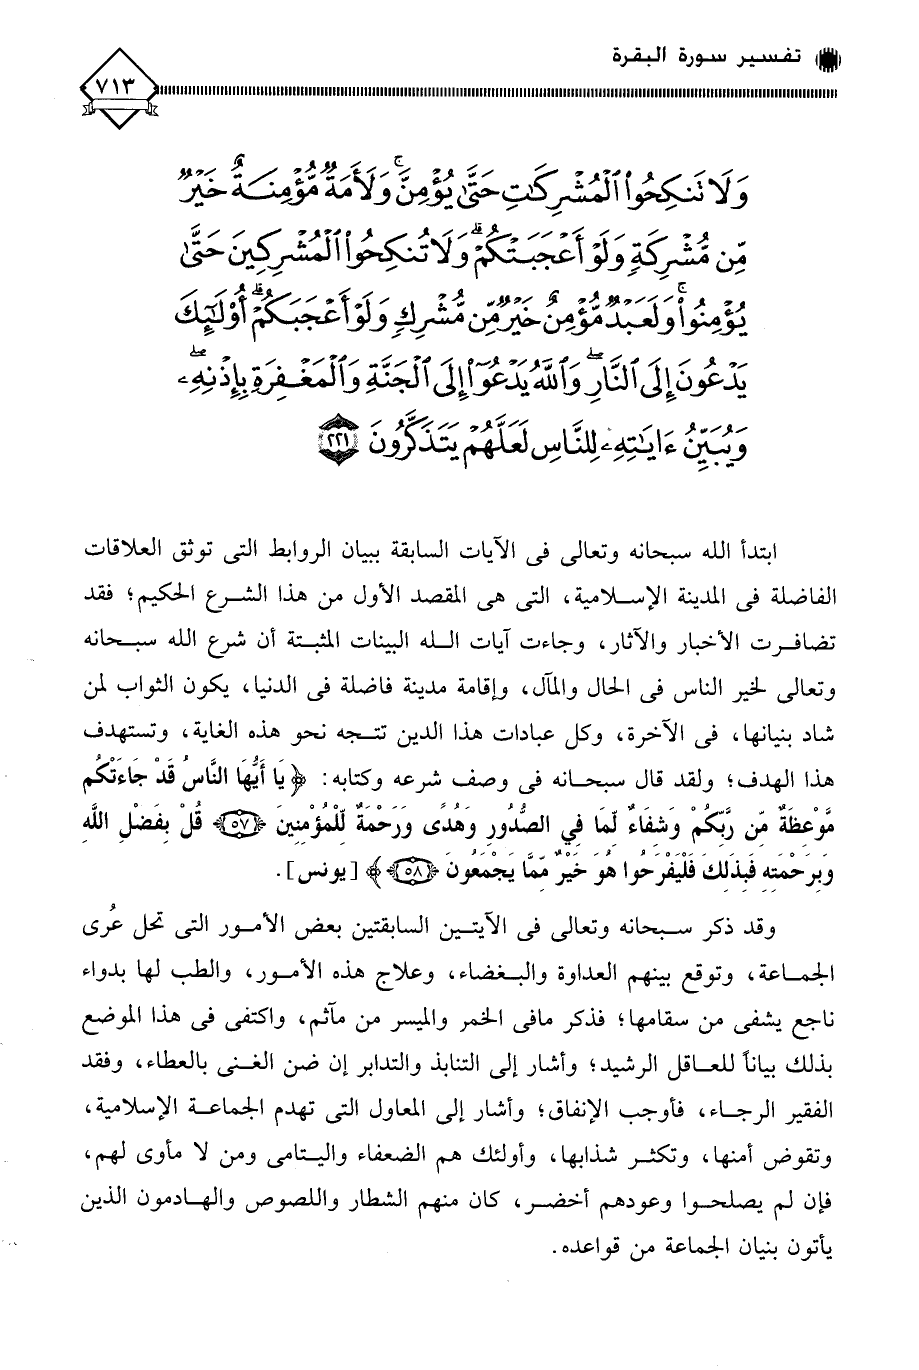 تفسير سورة البقرة
٧١٣
وَلَا تَنكِحُوا۟ ٱلْمُشْرِكَٰتِ حَتَّىٰ يُؤْمِنَّ ۚ وَلَأَمَةٌ مُّؤْمِنَةٌ خَيْرٌ
مِّن مُّشْرِكَةٍ وَلَوْ أَعْجَبَتْكُمْ ۗ وَلَا تُنكِحُوا۟ ٱلْمُشْرِكِينَ حَتَّىٰ
يُؤْمِنُوا۟ ۚ وَلَعَبْدٌ مُّؤْمِنٌ خَيْرٌ مِّن مُّشْرِكٍ وَلَوْ أَعْجَبَكُمْ ۗ أُو۟لَٰٓئِكَ
يَدْعُونَ إِلَى ٱلنَّارِ ۖ وَٱللَّهُ يَدْعُوٓا۟ إِلَى ٱلْجَنَّةِ وَٱلْمَغْفِرَةِ بِإِذْنِهِۦ ۖ
وَيُبَيِّنُ ءَايَٰتِهِۦ لِلنَّاسِ لَعَلَّهُمْ يَتَذَكَّرُونَ ٢٢١
ابتدأ الله سبحانه وتعالى فى الآيات السابقة ببيان الروابط التى توثق العلاقات
الفاضلة فى المدينة الإسلامية، التى هى المقصد الأول من هذا الشرع الحكيم؛ فقد
تضافرت الأخبار والآثار، وجاءت آيات الله البينات المثبتة أن شرع الله سبحانه
وتعالى لخير الناس فى الحال والمآل، وإقامة مدينة فاضلة فى الدنيا، يكون الثواب لمن
شاد بنيانها، فى الآخرة، وكل عبادات هذا الدين تتجه نحو هذه الغاية، وتستهدف
هذا الهدف؛ ولقد قال سبحانه فى وصف شرعه وكتابه: ﴿يَا أَيُّهَا النَّاسُ قَدْ جَاءَتْكُم
مَّوْعِظَةٌ مِّن رَّبِّكُمْ وَشِفَاءٌ لِّمَا فِي الصُّدُورِ وَهُدًى وَرَحْمَةٌ لِّلْمُؤْمِنِينَ ﴿٥٧﴾ قُلْ بِفَضْلِ اللَّهِ
وَبِرَحْمَتِهِ فَبِذَلِكَ فَلْيَفْرَحُوا هُوَ خَيْرٌ مِّمَّا يَجْمَعُونَ ﴿٥٨﴾﴾ [يونس].
وقد ذكر سبحانه وتعالى فى الآيتين السابقتين بعض الأمور التى تحل عُرى
الجماعة، وتوقع بينهم العداوة والبغضاء، وعلاج هذه الأمور، والطب لها بدواء
ناجع يشفى من سقامها؛ فذكر مافى الخمر والميسر من مآثم، واكتفى فى هذا الموضع
بذلك بياناً للعاقل الرشيد؛ وأشار إلى التنابذ والتدابر إن ضن الغنى بالعطاء، وفقد
الفقير الرجاء، فأوجب الإنفاق؛ وأشار إلى المعاول التى تهدم الجماعة الإسلامية،
وتقوض أمنها، وتكثر شذابها، وأولئك هم الضعفاء واليتامى ومن لا مأوى لهم،
فإن لم يصلحوا وعودهم أخضر، كان منهم الشطار واللصوص والهادمون الذين
يأتون بنيان الجماعة من قواعده.